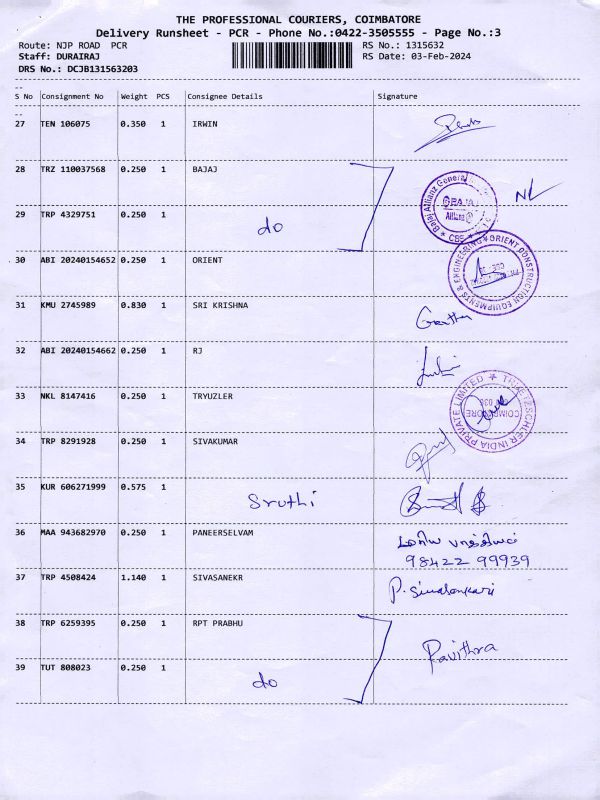 THE PROFESSIONAL COURIERS, COIMBATORE
Delivery Runsheet - PCR - Phone No.:0422-3505555 - Page No.:3
Route: NJP ROAD PCR RS No.: 1315632
Staff: DURAIRAJ RS Date: 03-Feb-2024
DRS No.: DCJB131563203
S No Consignment No Weight PCS Consignee Details Signature
27 TEN 106075 0.350 1 IRWIN
28 TRZ 110037568 0.250 1 BAJAJ
Bajaj Allianz General
BAJAJ
Allianz
CBE
29 TRP 4329751 0.250 1 do
30 ABI 20240154652 0.250 1 ORIENT
ORIENT CONSTRUCTION EQUIPMENTS & ENGINEERING
31 KMU 2745989 0.830 1 SRI KRISHNA
32 ABI 20240154662 0.250 1 RJ
33 NKL 8147416 0.250 1 TRYUZLER
INDIA PRIVATE LIMITED
COIMBATORE
34 TRP 8291928 0.250 1 SIVAKUMAR
35 KUR 606271999 0.575 1 Sruthi
36 MAA 943682970 0.250 1 PANEERSELVAM
98422 99939
37 TRP 4508424 1.140 1 SIVASANEKR P. Sivasankari
38 TRP 6259395 0.250 1 RPT PRABHU Pavithra
39 TUT 808023 0.250 1 do